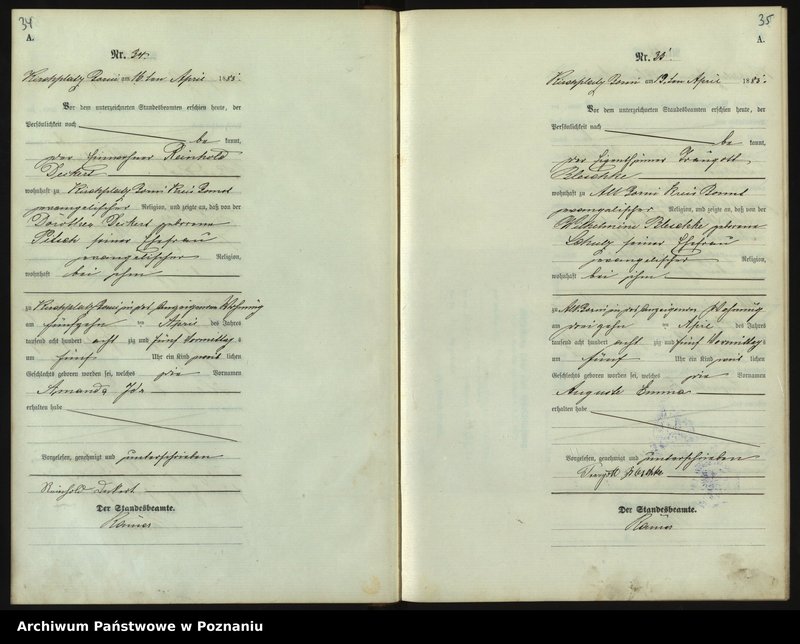 34
A.
Nr. 34.
Kirchplatz Borui am 16ten April 1885.
Vor dem unterzeichneten Standesbeamten erschien heute, der
Persönlichkeit nach
be kannt,
der Einwohner Reinhold
Deckert
wohnhaft zu Kirchplatz Borui Kreis Bomst
evangelischer Religion, und zeigte an, daß von der
Dorothea Deckert geborene
Pitsch seiner Ehefrau
evangelischer Religion,
wohnhaft bei ihm
zu Kirchplatz Borui in des Anzeigenden Wohnung
am fünfzehn ten April des Jahres
tausend acht hundert acht zig und fünf Vormittags
um fünf Uhr ein Kind weib lichen
Geschlechts geboren worden sei, welches die Vornamen
Amanda Ida
erhalten habe
Vorgelesen, genehmigt und unterschrieben
Reinhold Deckert
Der Standesbeamte.
35
A.
Nr. 35.
Kirchplatz Borui am 19ten April 1885.
Vor dem unterzeichneten Standesbeamten erschien heute, der
Persönlichkeit nach
be kannt,
der Eigenthümer Traugott
Bleschke
wohnhaft zu Alt Borui Kreis Bomst
evangelischer Religion, und zeigte an, daß von der
Wilhelmine Bleschke geborene
Schulz seiner Ehefrau
evangelischer Religion,
wohnhaft bei ihm
zu Alt Borui in des Anzeigenden Wohnung
am dreizehn ten April des Jahres
tausend acht hundert acht zig und fünf Vormittags
um fünf Uhr ein Kind weib lichen
Geschlechts geboren worden sei, welches die Vornamen
Auguste Emma
erhalten habe
Vorgelesen, genehmigt und unterschrieben
Traugott Bleschke
Der Standesbeamte.
Archiwum Państwowe w Poznaniu